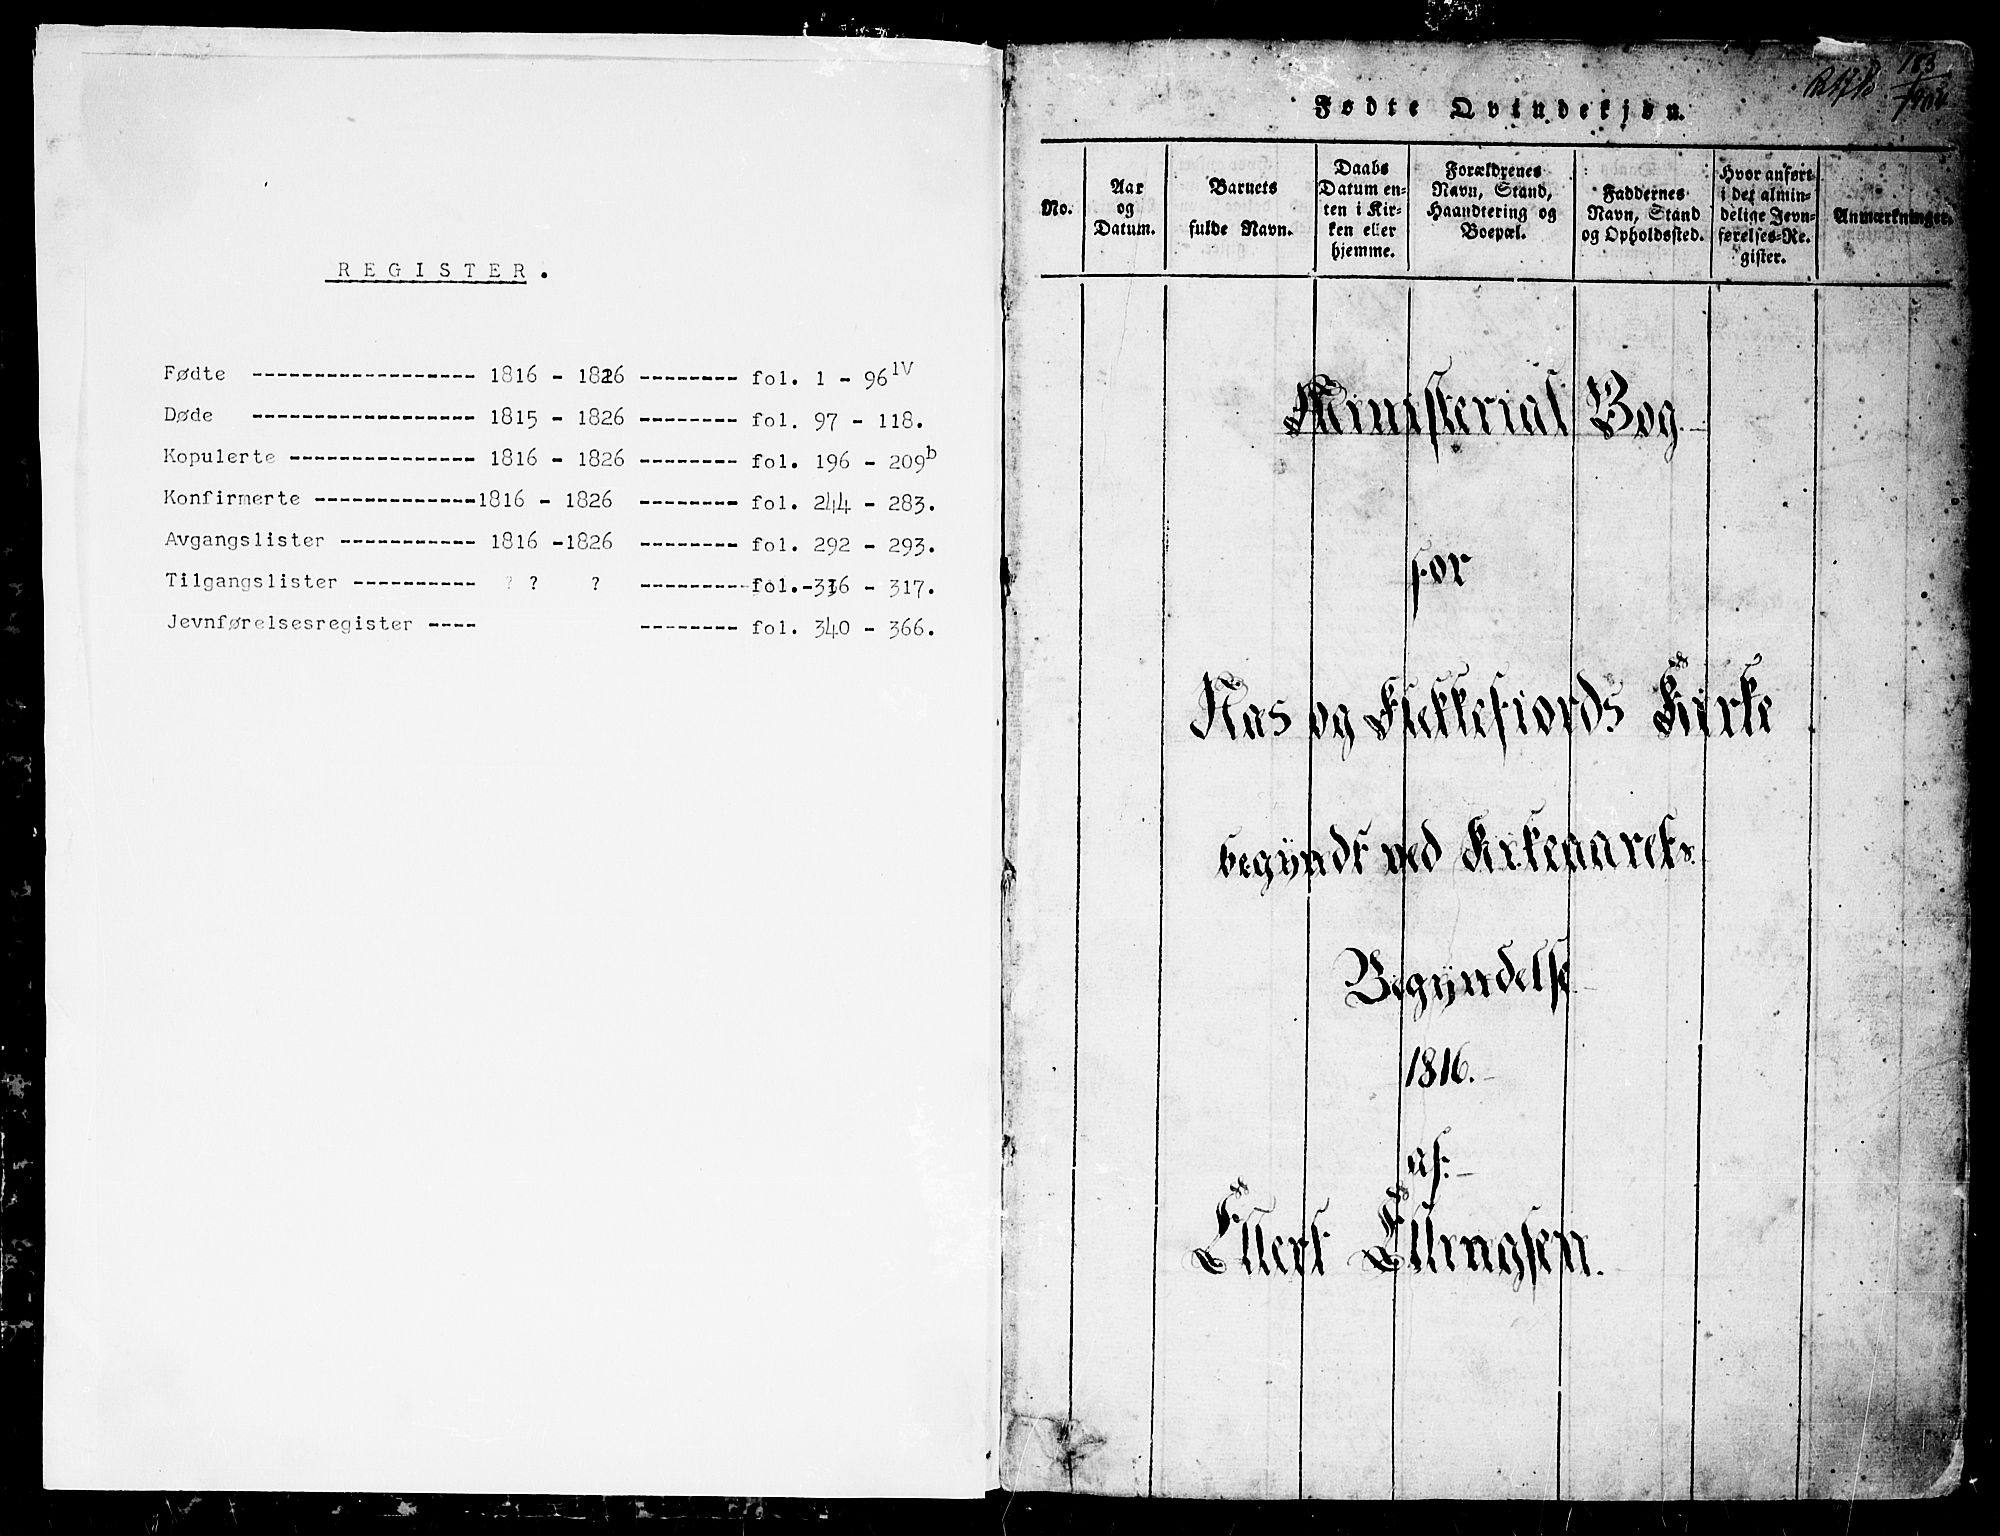 REGISTER.
Fødte ------------------ 1816 - 1826 -------- fol. 1 - 96IV
Døde ------------------ 1815 - 1826 -------- fol. 97 - 118.
Kopulerte --------------- 1816 - 1826 -------- fol. 196 - 209b
Konfirmerte -------------1816 - 1826 -------- fol. 244 - 283.
Avgangslister ----------- 1816 -1826 -------- fol. 292 - 293.
Tilgangslister ---------- ? ? ? -------- fol.-316 - 317.
Jevnførelsesregister ---- -------- fol. 340 - 366.
Fødte Qvindekjøn.
No.
Aar
og
Datum.
Barnets
fulde Navn.
Daabs
Datum en-
ten i Kir-
ken eller
hjemme.
Forældrenes
Navn, Stand,
Haandtering og
Boepæl.
Faddernes
Navn, Stand
og Opholdssted.
Hvor anført
i det almin-
delige Jevn-
førelses-Re-
gister.
Anmærkninger.
Ministerial Bog
for
Nas og Flekkefiords Kirke
begyndt ved Kirkeaarets
Begyndelse
1816.
af
Ellert Ellingsen.